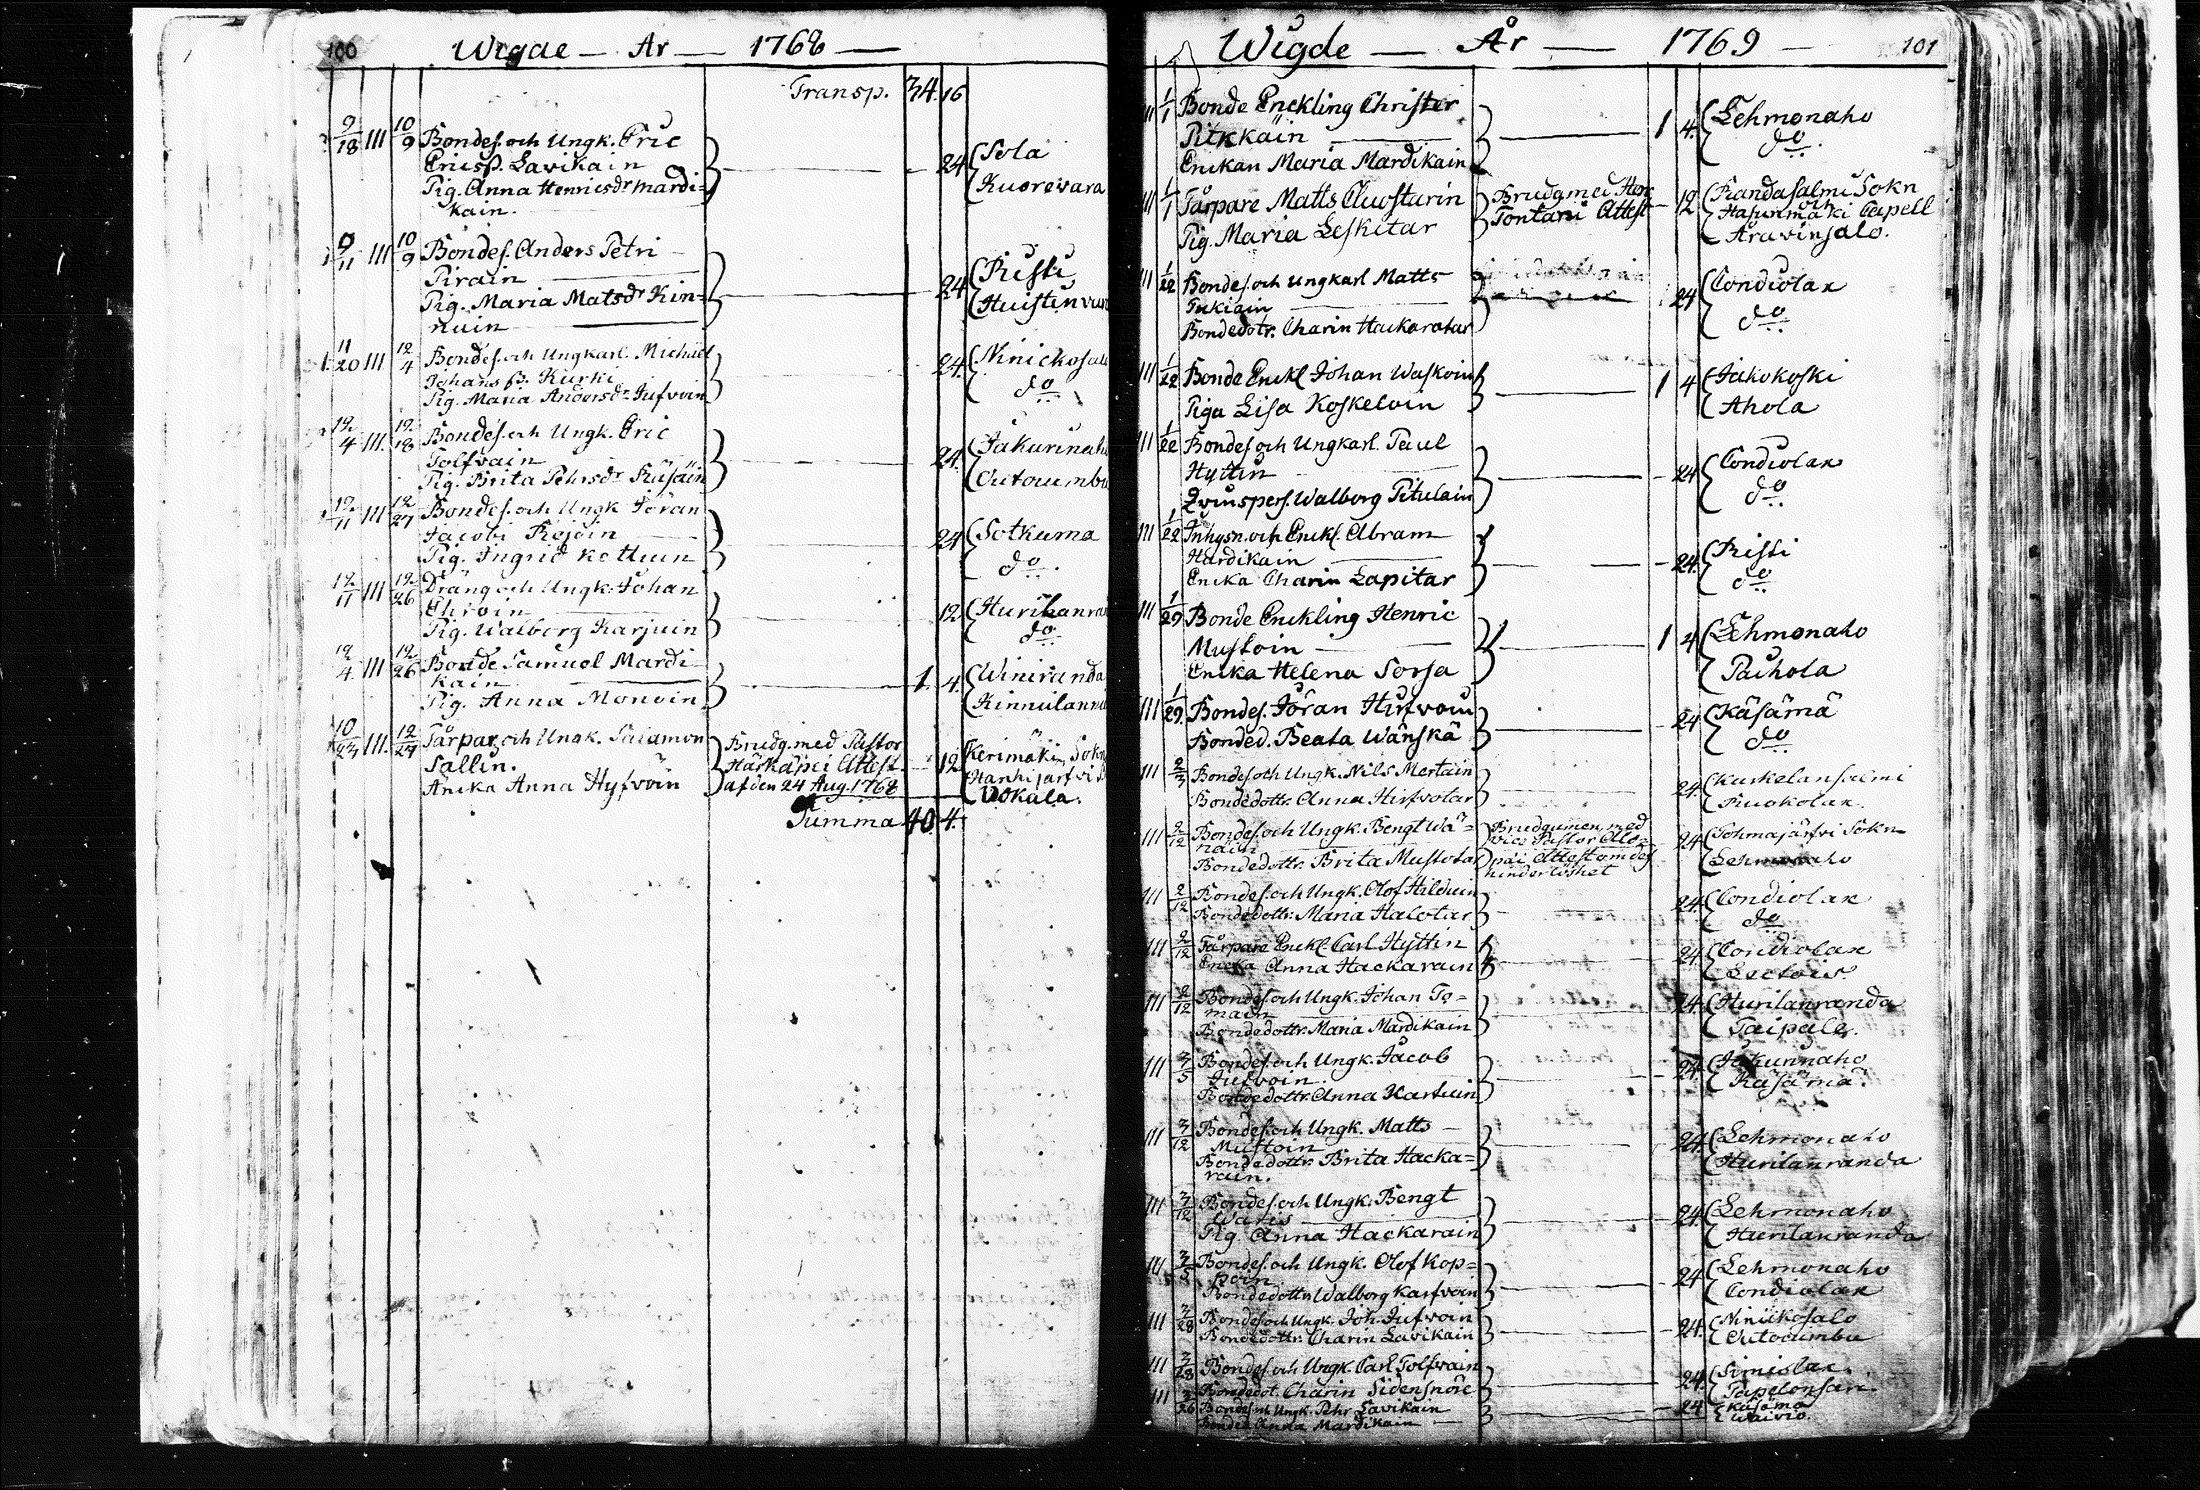 100 Wigde — År — 1768 —
Transp. 34. 16
9/18 III 10/9 Bondes. och Ungk. Eric
Ericss. Lavikain
Pig. Anna Henricsdr Mardi=
kain. 24 Sola
Kuorevara
9/11 III 10/9 Bondes. Anders Petri
Pirain
Pig. Maria Matsdr Kin=
nuin 24 Risti
Huistinvara
11/20 III 12/4 Bondes. och Ungkarl. Michael
Johanss. Kurki
Pig. Maria Andersdr Jufvoin 24. Ninickosalo
do
12/4 III. 12/18 Bondes. och Ungk. Eric
Tolfvain
Pig. Brita Pehrsdr Räsäin 24. Jakurinaho
Outocumbu
12/11 III 12/27 Bondes. och Ungk Jöran
Jacobi Rejoin
Pig. Ingrid Kettuin 24 Sotkuma
do.
12/11 III 12/26 Dräng och Ungk. Johan
Ehrvoin
Pig. Walborg Karjuin 12 Hurilanranda
do
12/4. III 12/26 Bonde Samuel Mardi
kain
Pig. Anna Monoin 1. 4. Winiranda
Kinnulanni
10/23 III. 12/27 Tårpar och Ungk. Salamon
Sallin.
Ancka Anna Hyfvöin
Brudg. med Pastor
Härkäpei Attest
af den 24 Aug. 1768
12 Kerimäki Sokn
Hanhijarfvi
Wokala.
Summa 40. 4.
Wigde — År — 1769 — 101
III 1/1 Bonde Enckling Christer
Pitkkäin
Enckan Maria Mardikain 1 4. Lehmonaho
do.
III 1/1 Tårpare Matts Clwstarin
Pig. Maria Leskitar
Brudgmed Herr
Tontani Attest
12 Randasalmi Sokn
och
Hasunmäki Capell
Aravinsalo.
III 1/22 Bondes. och Ungkarl Matts
Tukiain
Bondedotr. Charin Hackaratar 24 Condiolax
do
III 1/22 Bonde Enckl Johan Waskoin
Piga Lisa Koskeloin 1 4 Jakokoski
Ahola
III 1/22 Bondes. och Ungkarl. Paul
Hyttin
Qvinspers. Walborg Pitulain 24 Condiolax
do
III 1/22 Inhysn. och Enckl. Abram
Hardikain
Encka Charin Lapitar 24. Risti
do
III 1/29 Bonde Enckling Henric
Mustoin
Encka Helena Sorsa 1 4 Lehmonaho
Pachola
III 1/29. Bondes. Jöran Hirfvoin
Bonded. Beata Wänskä 24 Käsämä
do
III 2/3 Bondes. och Ungk. Nils Mertain
Bondedottr. Anna Hirfvotar 24. Kuskelansalmi
Ruokolax
III 2/12 Bondes. och Ungk. Bengt Wä=
näin
Bondedottr. Brita Mustotar
Brudgumen med
vice Pastor Alo=
pei Attest om des
hinderlöshet
24 Tohmajärfvi Sokn
Lehmonaho
III 2/12 Bondes. och Ungk. Olof Hilduin
Bondedottr. Maria Halotar 24. Condiolax
do
III 2/12 Tårpare Enckl. Carl Hyttin
Encka Anna Hackarain 24. Condiolax
Luctois
III 2/12 Bondes. och Ungk. Johan To=
main
Bondedottr. Maria Mardikain 24. Hurilanranda
Taipale.
III 3/5 Bondes. och Ungk. Jacob
Jufvoin.
Bondedottr. Anna Karhuin 24. Jakunnaho
Käsämä
III 3/12 Bondes. och Ungk. Matts
Mustoin
Bondedottr. Brita Hacka=
rain. 24. Lehmonaho
Hurilanranda
III 3/12 Bondes. och Ungk. Bengt
Waris
Pig. Anna Hackarain 24. Lehmonaho
Hurilanranda
III 3/5 Bondes. och Ungk. Olof Kop=
poin
Bondedottr Walborg Karfvoin 24 Lehmonaho
Condiolax
III 3/28 Bondes. och Ungk. Joh. Jufvoin
Bondedottr. Charin Lavikain 24. Niniikosalo
Outocumbu
III 3/28 Bondes. och Ungk. Carl Tolfvain
Bondedot. Charin Sidensnöre 24. Simiolax
Papelonsari
III 3/26 Bondes. och Ungk. Pehr Lavikain
Bonded. Anna Mardikain 24 Käsämä
Waivio.